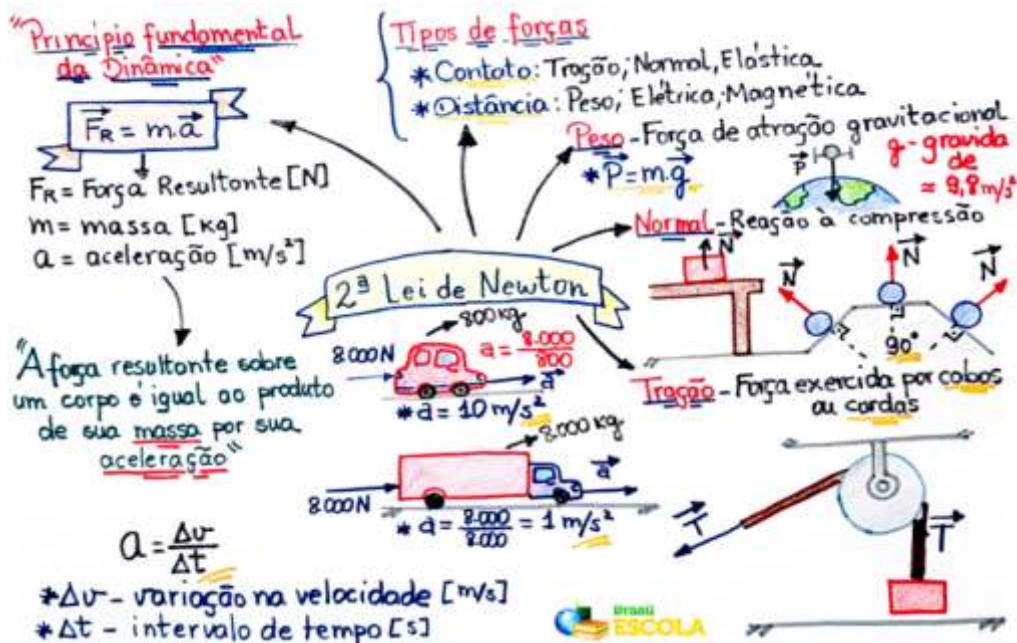 "Princípio fundamental
da Dinâmica"
F_R = m.a
F_R = Força Resultante [N]
m = massa [kg]
a = aceleração [m/s²]
"A força resultante sobre
um corpo é igual ao produto
de sua massa por sua
aceleração"
a = Δv/Δt
*Δv - variação na velocidade [m/s]
*Δt - intervalo de tempo [s]
Tipos de forças
*Contato: Tração; Normal, Elástica
*Distância: Peso; Elétrica; Magnética
Peso - Força de atração gravitacional
*P = m.g
P
g - gravida
de
≈ 9,8 m/s²
Normal - Reação à compressão
N
N
N
N
90°
2ª Lei de Newton
800 kg
8.000 N
a = 8.000/800
a
*a = 10 m/s²
8.000 kg
8.000 N
a
*a = 8.000/8.000 = 1 m/s²
Tração - Força exercida por cabos
ou cordas
T
T
Brasil
ESCOLA